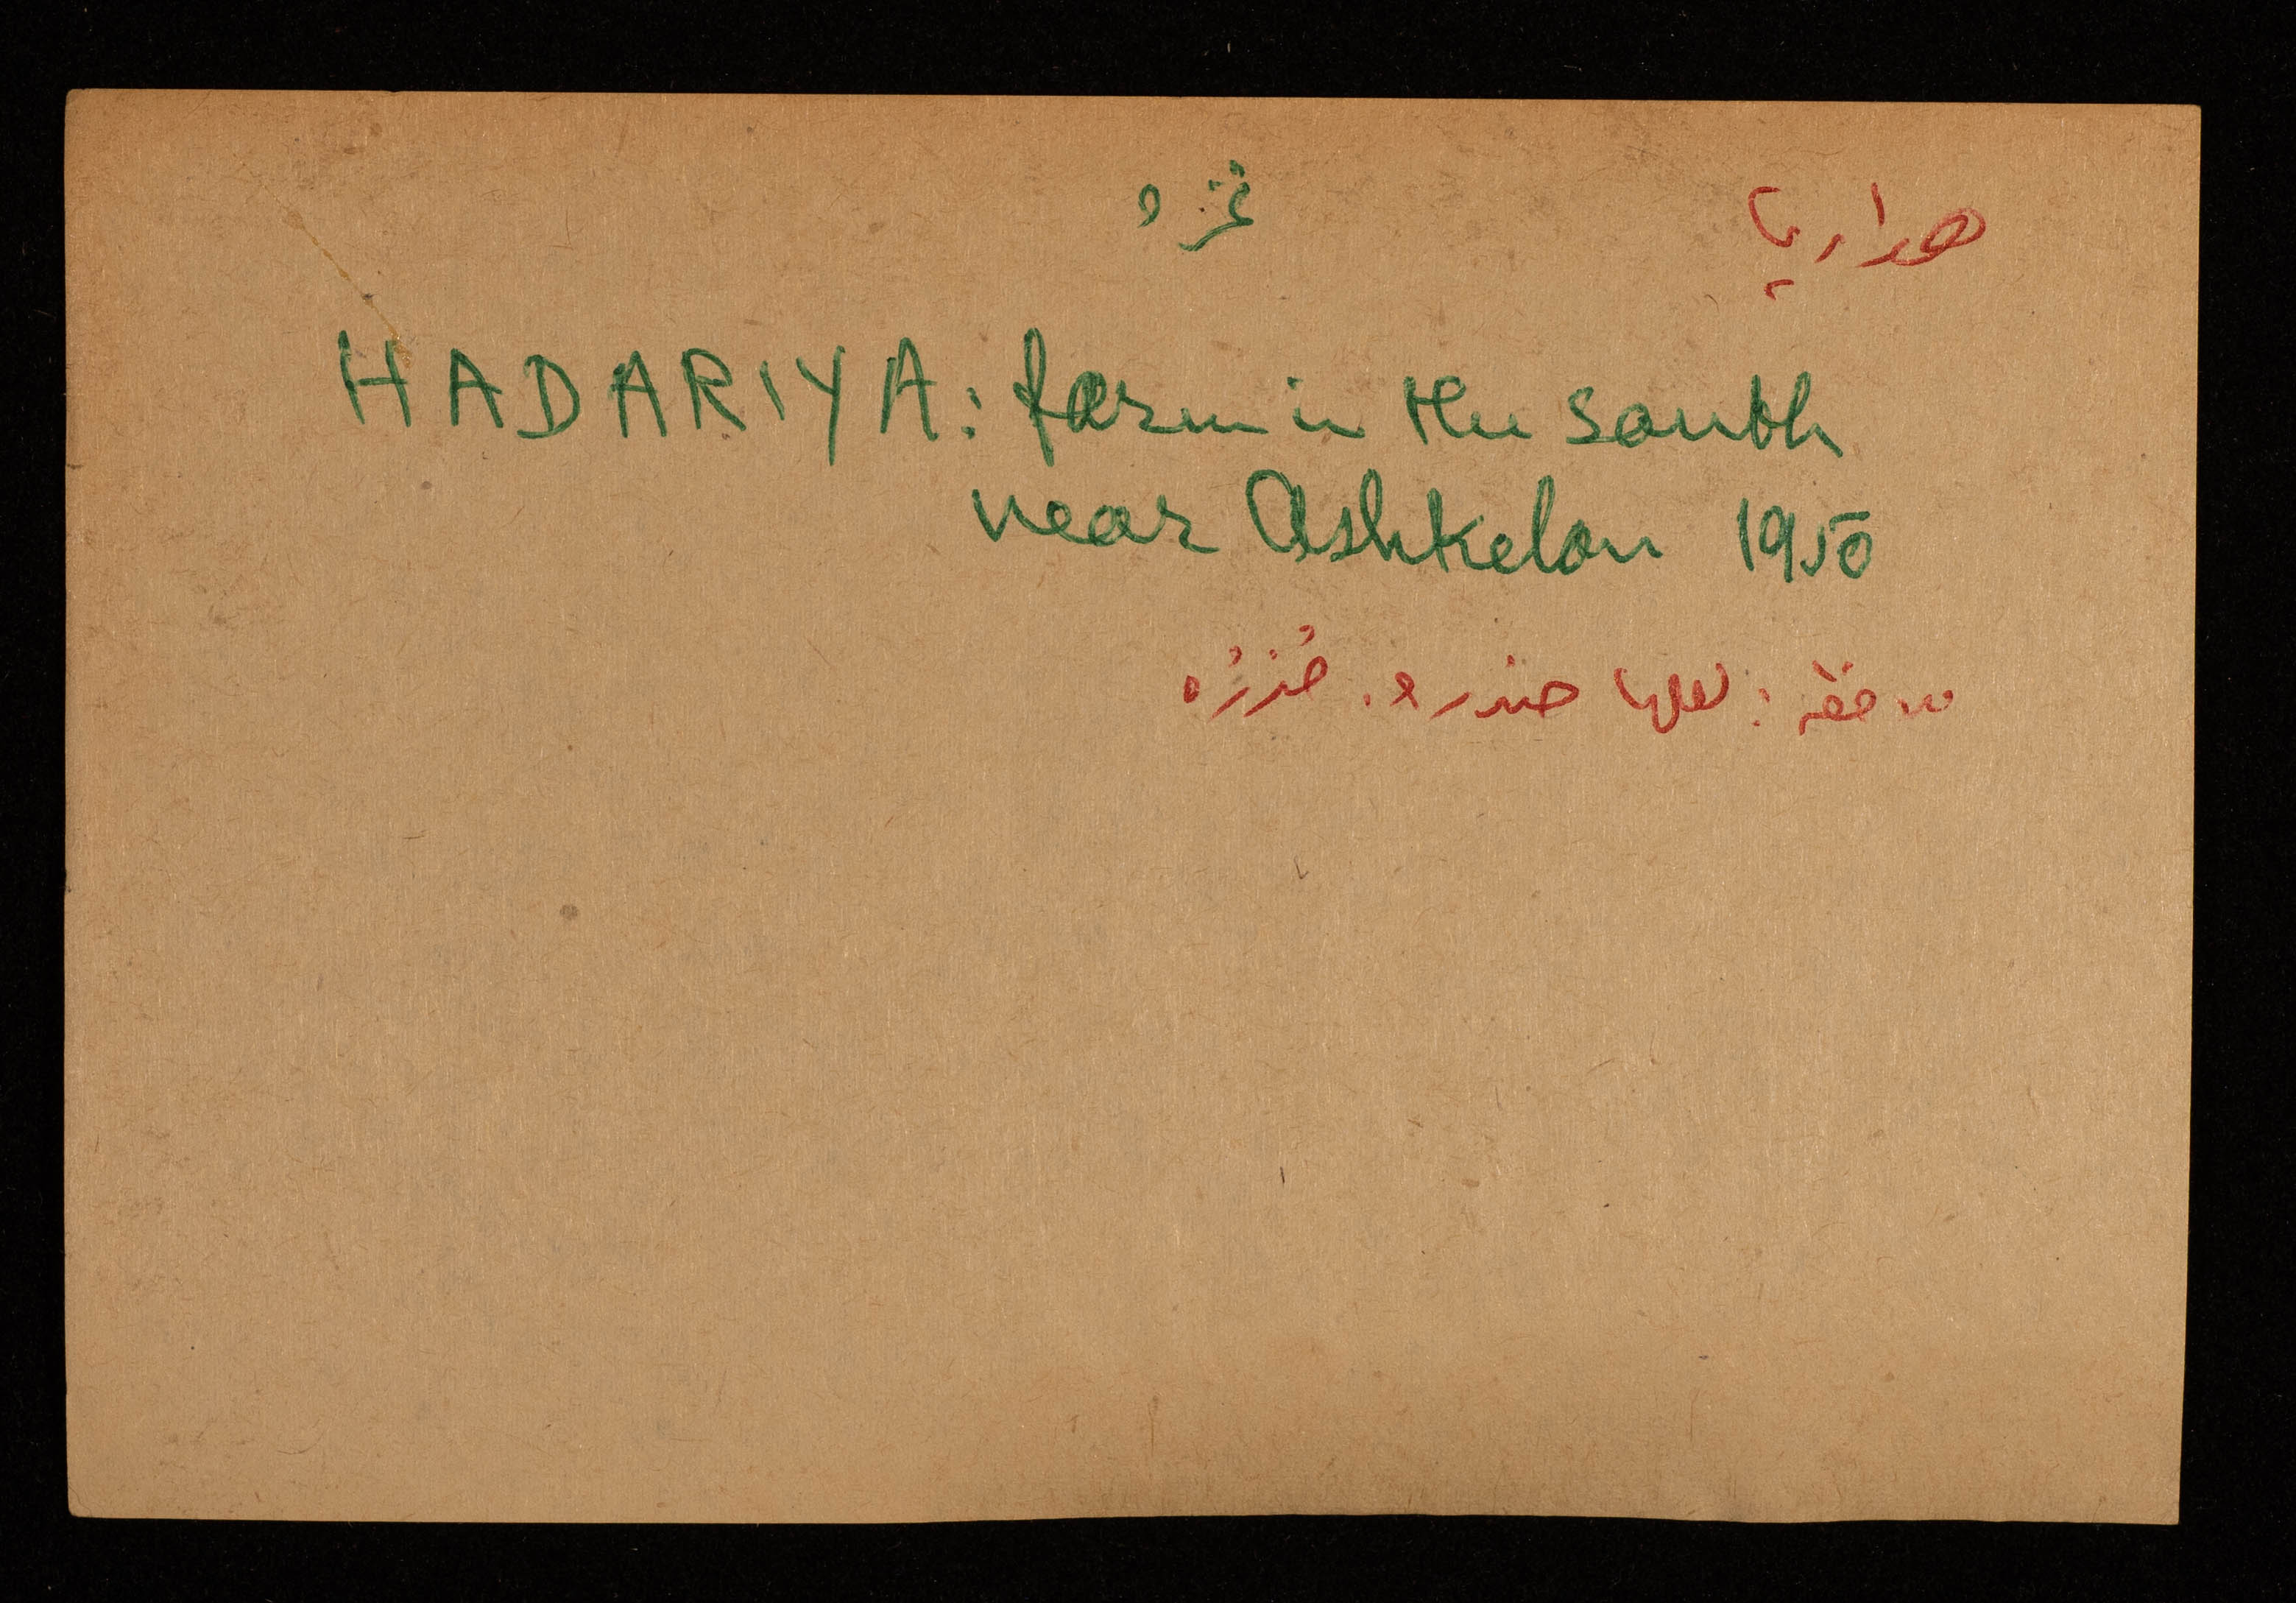 هداريا غزة
HADARIYA: farm in the south
near Ashkelon 1950
لعلها